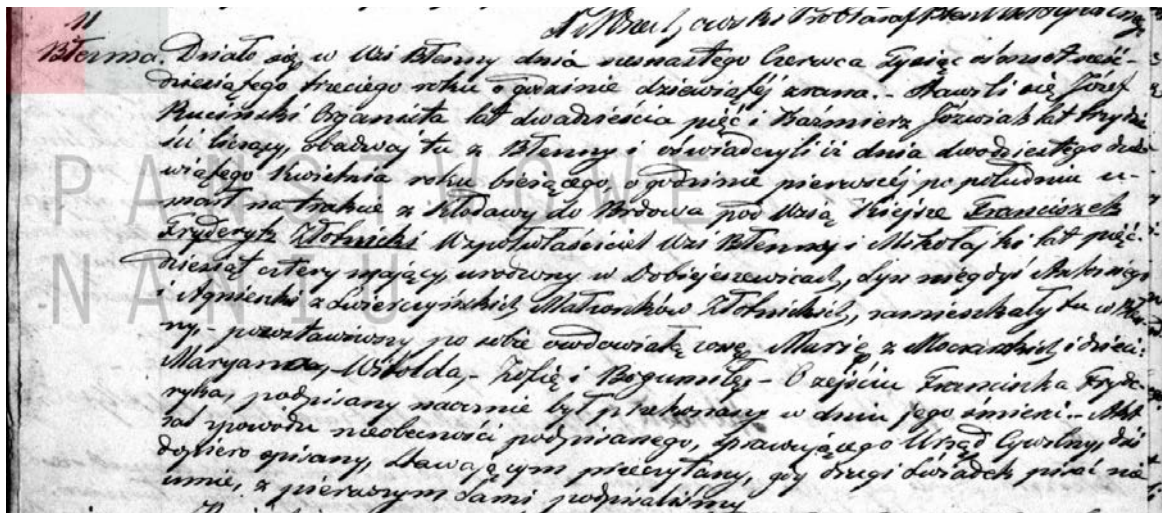 11
Błenna. Działo się w Wsi Błenny dnia szesnastego Czerwca Tysiąc ośmset sześć-
dziesiątego trzeciego roku o godzinie dziewiątéj zrana. - Stawili się Józef
Ruciński Organista lat dwadzieścia pięć i Kaźmierz Jóźwiak lat trzydzie
ści liczący, obadwaj tu z Błenny i oświadczyli iż dnia dwudziestego dzie
wiątego Kwietnia roku bieżącego, o godzinie pierwszéj po południu u-
marł na trakcie z Kłodawy do Brdowa pod Wsią Kiejsze Franciszek
Fryderyk Złotnicki Współwłaściciel Wsi Błenny i Mikołajki lat pięć-
dziesiąt cztery mający, urodzony w Dobiejszewicach, Syn niegdyś Antoniego
i Agnieszki z Świerczyńskich Małżonków Złotnickich, zamieszkały tu w Błen
ny, - pozostawiwszy po sobie owdowiałą żonę Marię z Moczarskich i dzieci:
Maryanna, - Witolda, - Zofię i Bogumiłę, - O zejściu Franciszka Fryde-
ryka, podpisany naocznie był przekonany w dniu jego śmierci. - Akt
zaś z powodu nieobecności podpisanego, sprawującego Urząd Cywilny, dziś
dopiero spisany, Stawającym przeczytany, gdy drugi Świadek pisać nie
umie, z pierwszym Sami podpisaliśmy
PAŃSTWOWE
NANIU